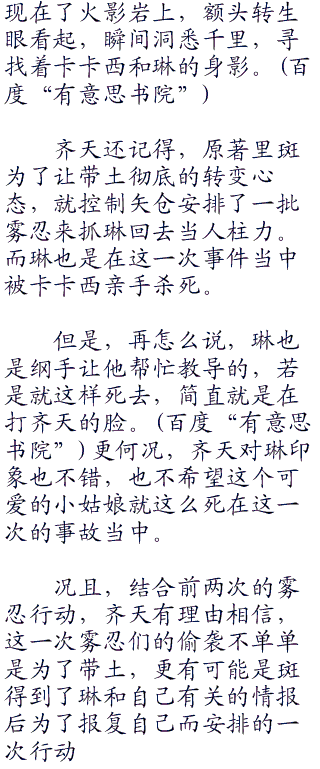 现在了火影岩上，额头转生
眼看起，瞬间洞悉千里，寻
找着卡卡西和琳的身影。(百
度“有意思书院”)
齐天还记得，原著里斑
为了让带土彻底的转变心
态，就控制矢仓安排了一批
雾忍来抓琳回去当人柱力。
而琳也是在这一次事件当中
被卡卡西亲手杀死。
但是，再怎么说，琳也
是纲手让他帮忙教导的，若
是就这样死去，简直就是在
打齐天的脸。(百度“有意思
书院”)更何况，齐天对琳印
象也不错，也不希望这个可
爱的小姑娘就这么死在这一
次的事故当中。
况且，结合前两次的雾
忍行动，齐天有理由相信，
这一次雾忍们的偷袭不单单
是为了带土，更有可能是斑
得到了琳和自己有关的情报
后为了报复自己而安排的一
次行动